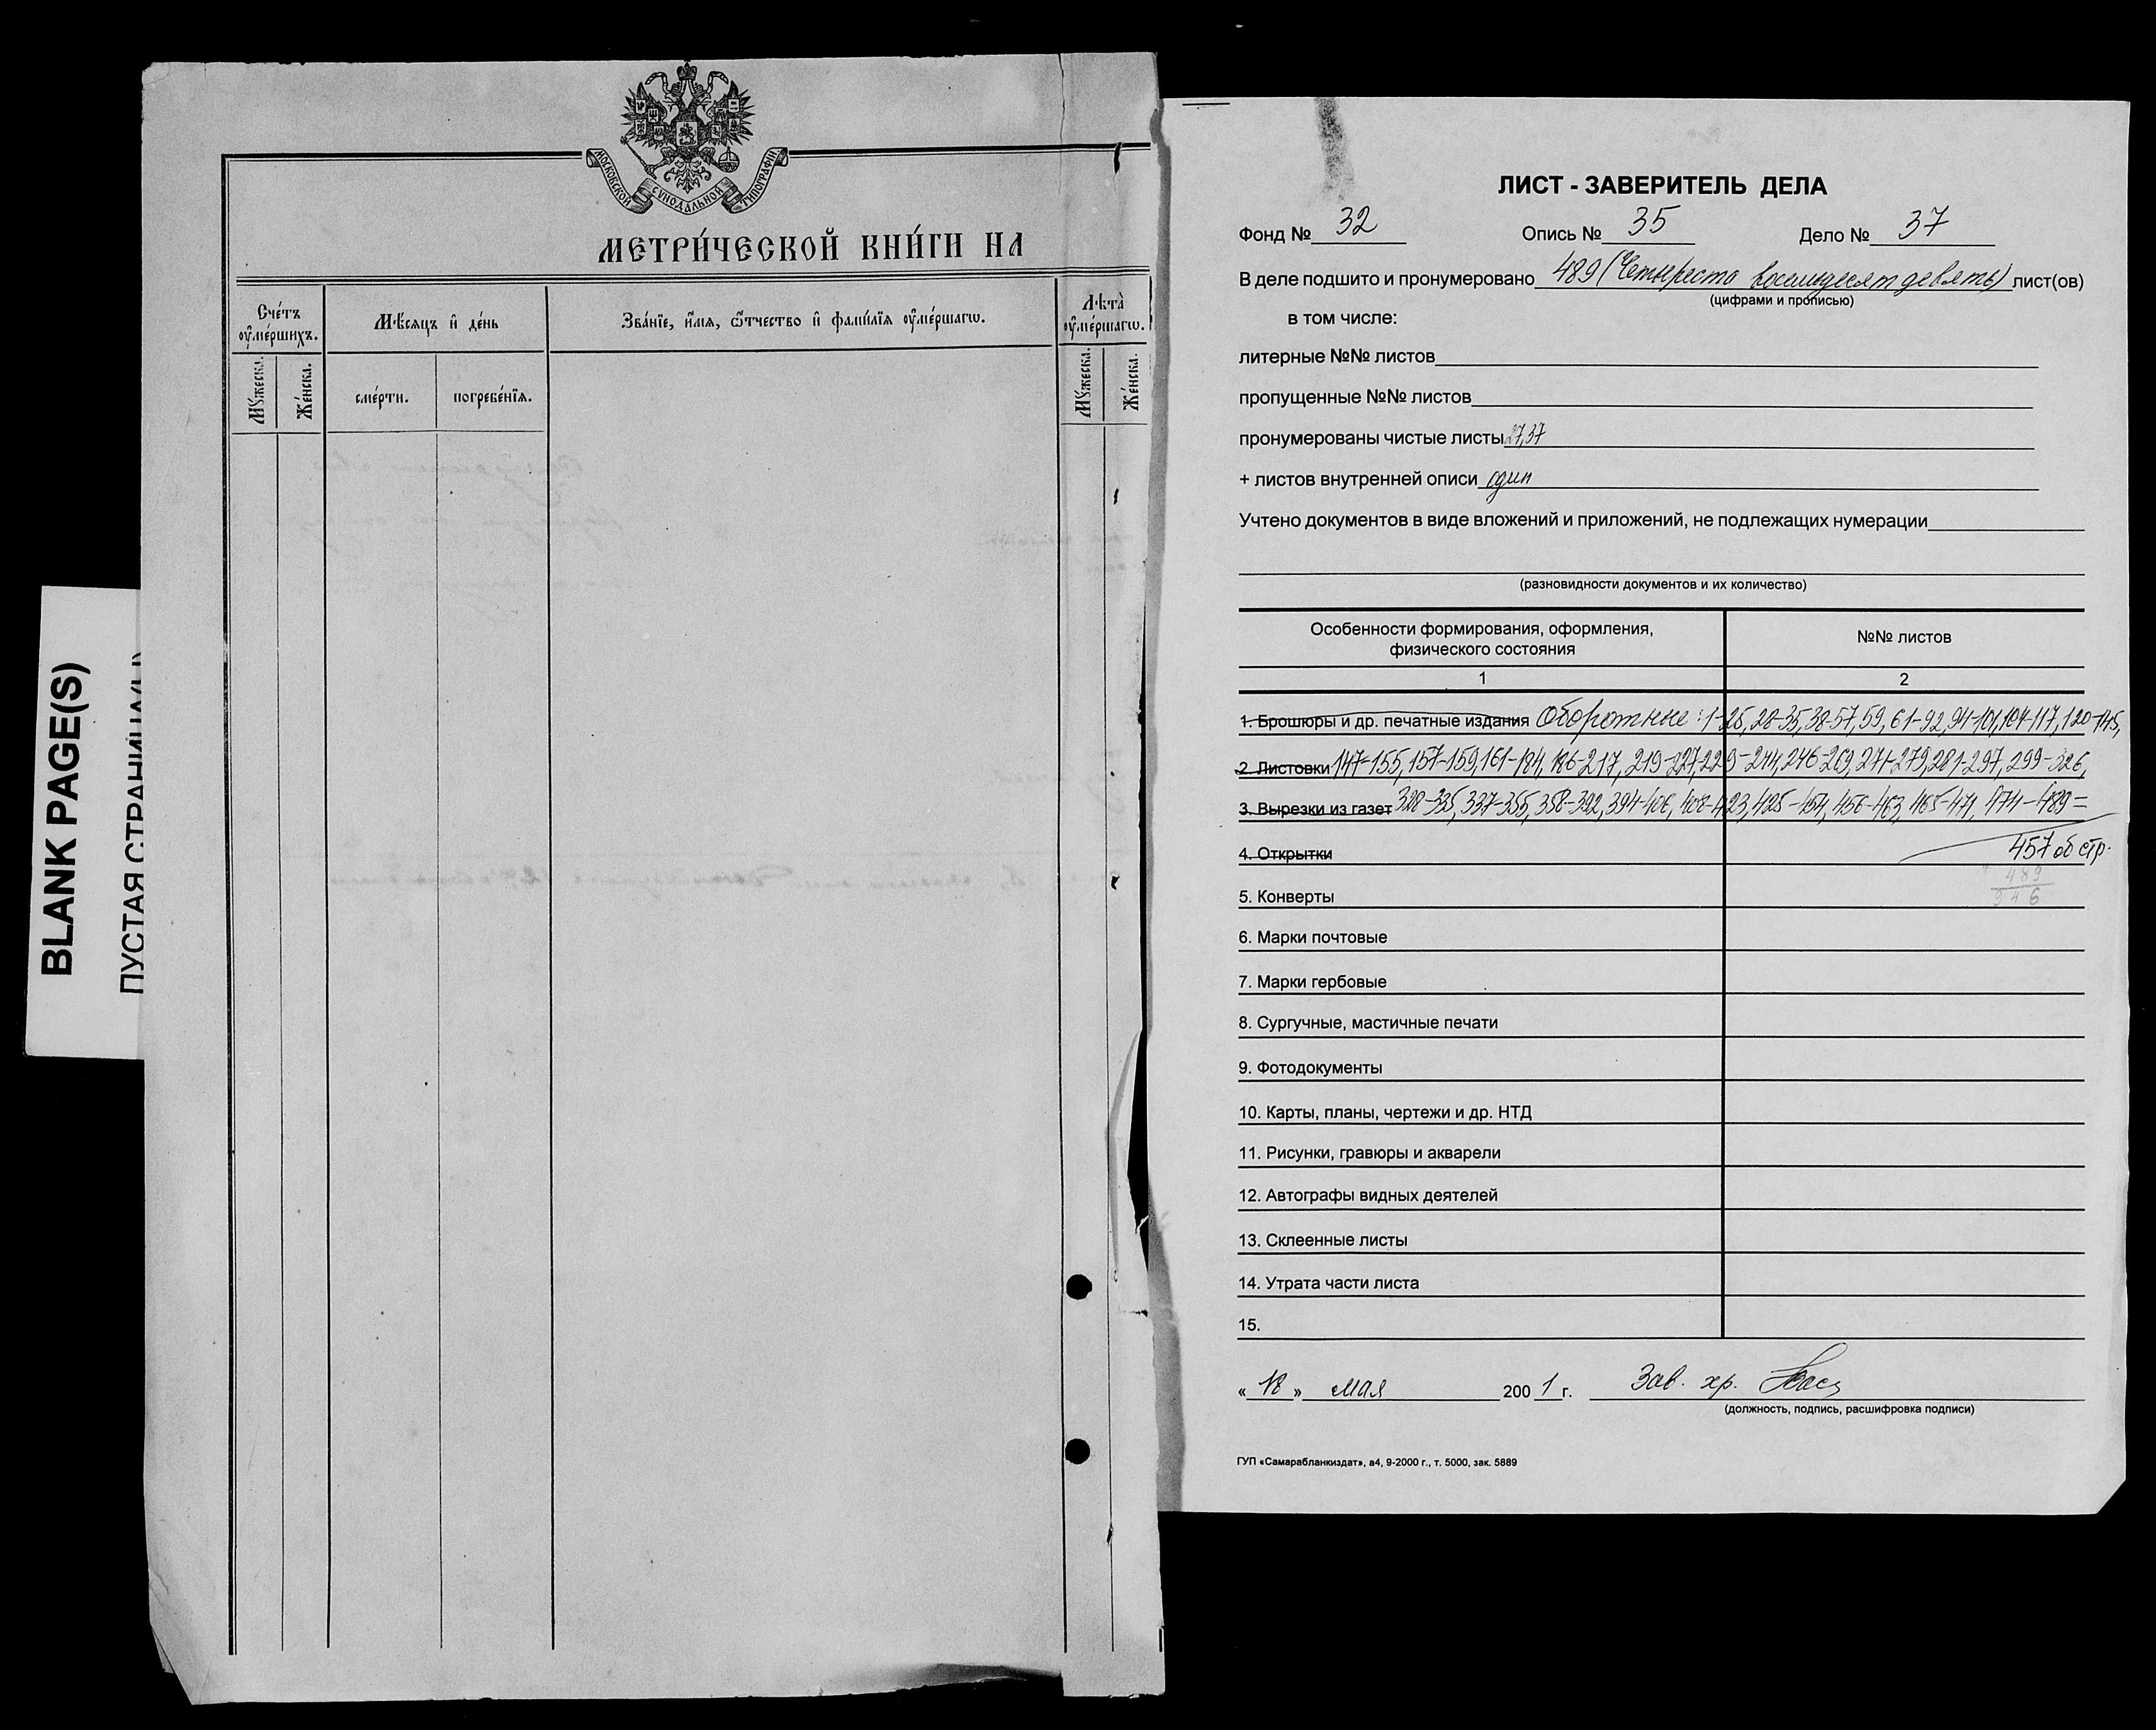 BLANK PAGE(S)
ПУСТАЯ СТРАНИЦА(Ы)
МОСКОВСКОЙ СѴНОДАЛЬНОЙ ТИПОГРАФІИ
МЕТРИ́ЧЕСКОЙ КНИ́ГИ НА
Сче́тъ ᲂу҆ме́ршихъ.
Мѣ́сяцъ и҆ де́нь
Зва́нїе, и҆́мя, ѻ҆́тчество и҆ фами́лїя ᲂу҆ме́ршагѡ.
Лѣта̀ ᲂу҆ме́ршагѡ.
Мꙋ́жеска.
Же́нска.
сме́рти.
погребе́нїя.
Мꙋ́жеска.
Же́нска.
ЛИСТ - ЗАВЕРИТЕЛЬ ДЕЛА
Фонд № 32 Опись № 35 Дело № 37
В деле подшито и пронумеровано 489 (Четыреста восемьдесят девять) лист(ов)
(цифрами и прописью)
в том числе:
литерные №№ листов
пропущенные №№ листов
пронумерованы чистые листы 27,37
+ листов внутренней описи один
Учтено документов в виде вложений и приложений, не подлежащих нумерации
(разновидности документов и их количество)
Особенности формирования, оформления,
физического состояния
№№ листов
1 2
1. Брошюры и др. печатные издания Оборотные: 1-25, 28-35, 38-57, 59, 61-92, 94-101, 104-117, 120-145,
2. Листовки 147-155, 157-159, 161-184, 186-217, 219-227, 229-244, 246-269, 271-279, 281-297, 299-326,
3. Вырезки из газет 328-335, 337-355, 358-392, 394-406, 408-423, 425-454, 456-463, 465-471, 474-489=
4. Открытки 457 об стр.
489
946
5. Конверты
6. Марки почтовые
7. Марки гербовые
8. Сургучные, мастичные печати
9. Фотодокументы
10. Карты, планы, чертежи и др. НТД
11. Рисунки, гравюры и акварели
12. Автографы видных деятелей
13. Склеенные листы
14. Утрата части листа
15.
« 18 » мая 200 1 г. Зав. хр.
(должность, подпись, расшифровка подписи)
ГУП «Самарабланкиздат», а4, 9-2000 г., т. 5000, зак. 5889